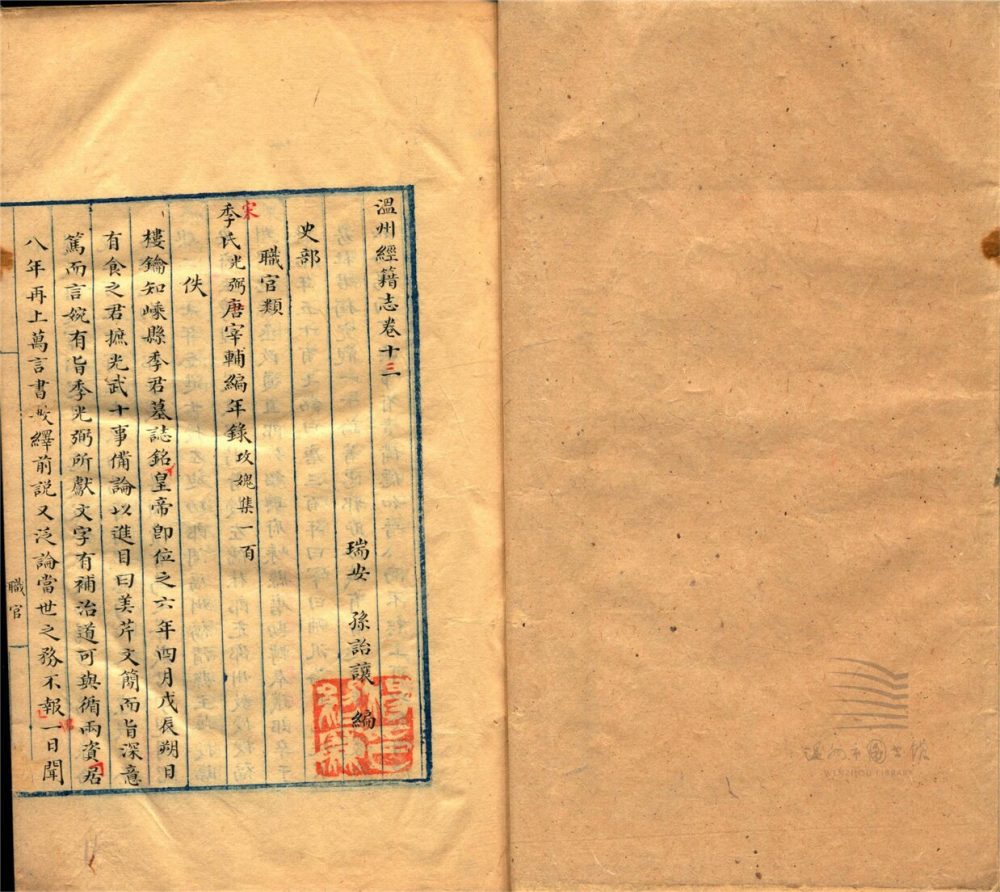 溫州經籍志卷十三
瑞安 孫詒讓 編
史部
職官類
宋
季氏光弼唐宰輔編年錄攻媿集一百
佚
樓鑰知嵊縣季君墓誌銘皇帝卽位之六年四月戊辰朔日
有食之君摭光武十事備論以進目曰美芹文簡而旨深意
篤而言婉有旨季光弼所獻文字有補治道可與循兩資君
八年再上萬言書敷繹前說又泛論當世之務不報一日聞
職官
溫州市圖書館
WENZHOU LIBRARY